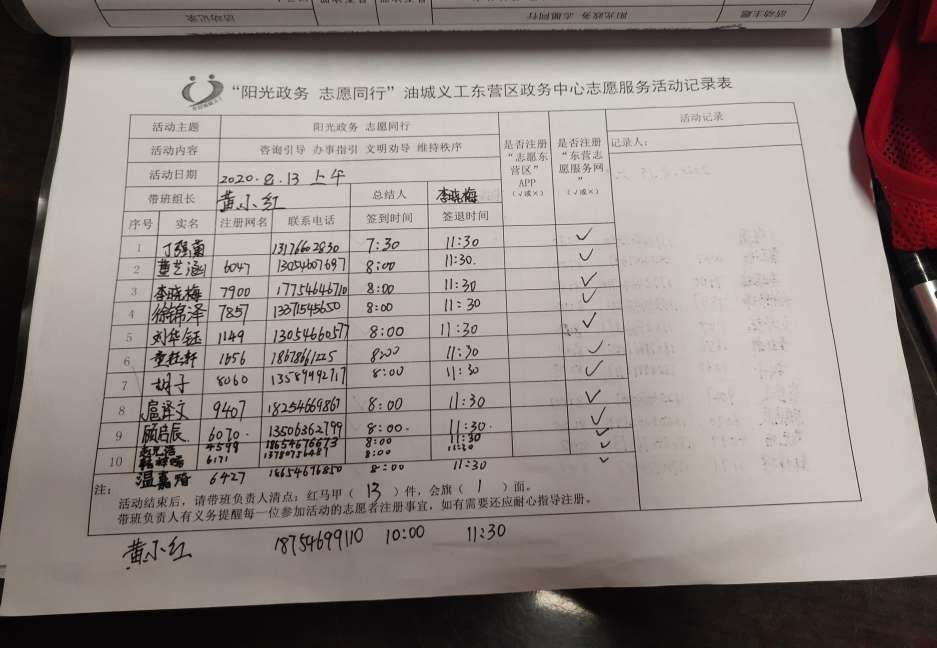 “阳光政务 志愿同行”油城义工东营区政务中心志愿服务活动记录表
活动主题 阳光政务 志愿同行 是否注册“志愿东营区”APP（√或×） 是否注册“东营志愿服务网”（√或×） 活动记录
活动内容 咨询引导 办事指引 文明劝导 维持秩序 记录人：
活动日期 2020.8.13 上午
带班组长 黄小红 总结人 李晓梅
序号 实名 注册网名 联系电话 签到时间 签退时间
1 丁强南 7:30 11:30 √
2 董艺涵 6047 13054607697 8:00 11:30. √
3 李晓梅 7900 17754646710 8:00 11:30 √
4 徐锦泽 7857 13371545650 8:00 11:30 √
5 刘华钰 1149 13054660577 8:00 11:30 √
6 1656 18678661225 8:00 11:30 √
7 胡子 8060 13589992717 8:00 11:30 √
8 扈译文 9407 18254669867 8:00 11:30 √
9 顾启辰 6070. 13506362799 8:00. 11:30. √
4599 18654676673 8:00 11:30 √
10 6171 13780736487 8:00 11:30 √
温嘉 6427 18654696850 8:00 11:30 √
注：
活动结束后，请带班负责人清点：红马甲（13）件，会旗（1）面。
带班负责人有义务提醒每一位参加活动的志愿者注册事宜，如有需要还应耐心指导注册。
黄小红 18754699110 10:00 11:30